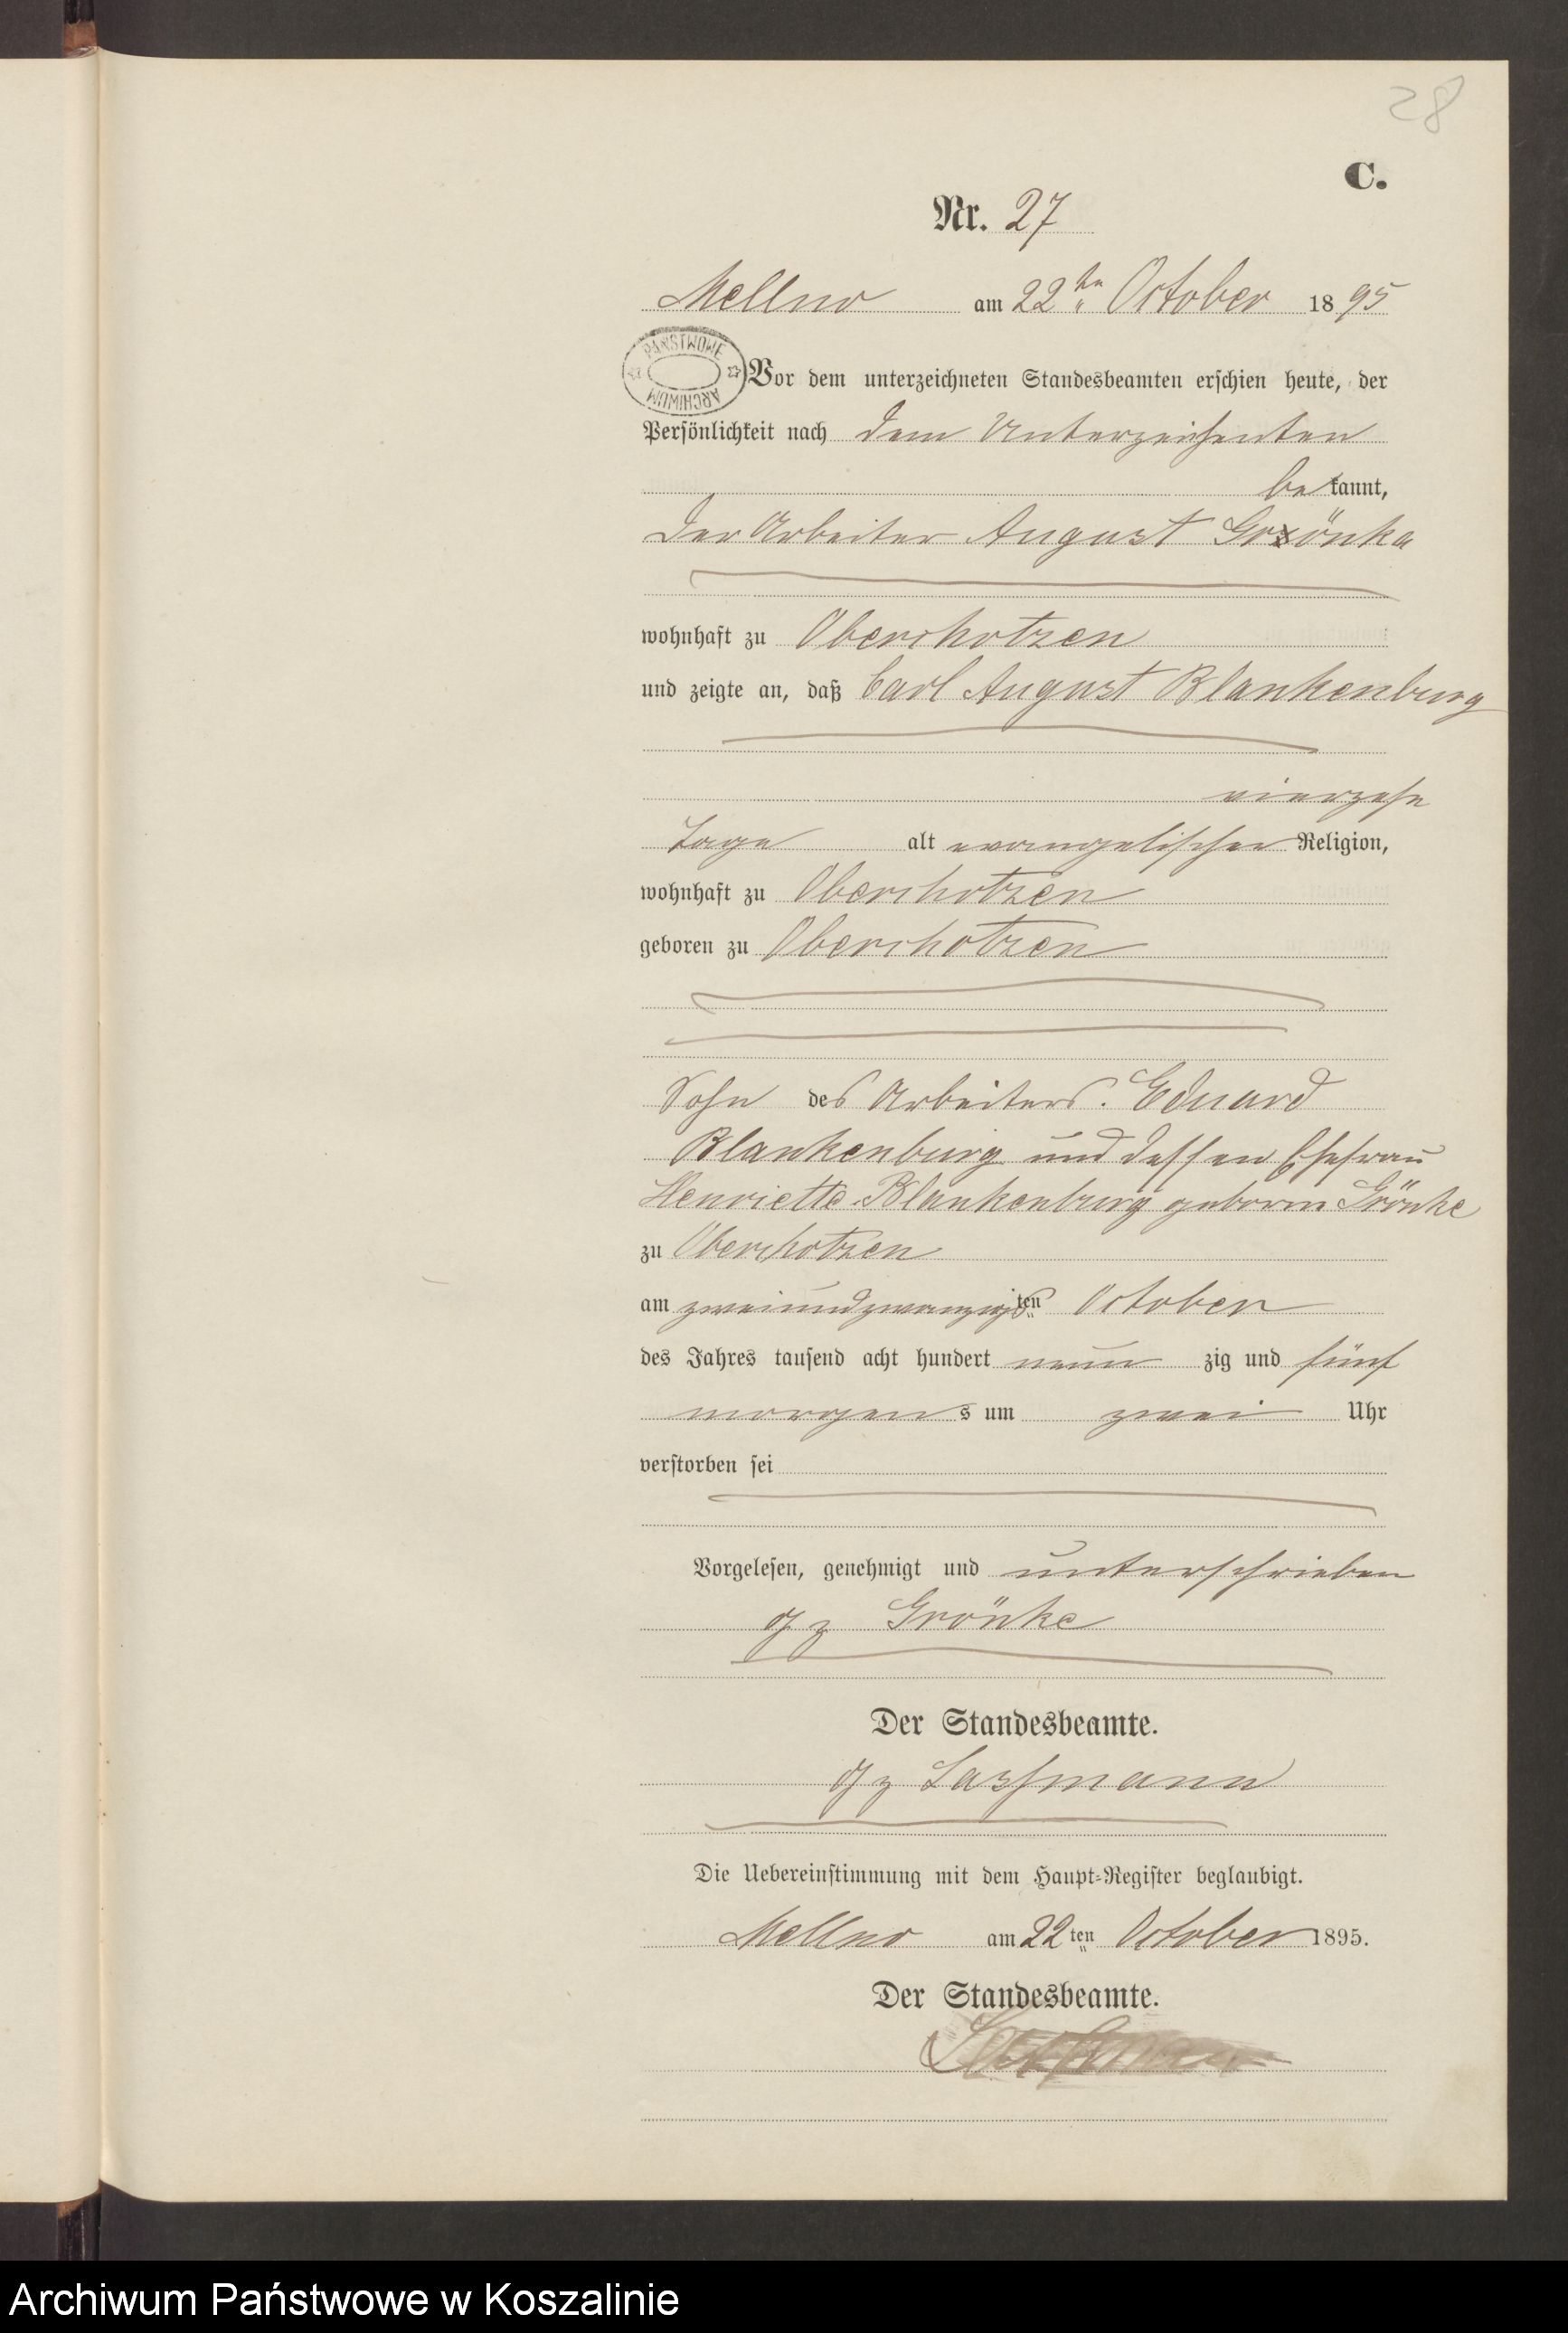 28
C.
Nr. 27
Mellno am 22ten October 1895
PAŃSTWOWE ARCHIWUM
Vor dem unterzeichneten Standesbeamten erschien heute, der
Persönlichkeit nach dem Unterzeichenten
bekannt,
der Arbeiter August Grönka
wohnhaft zu Oberschotzen
und zeigte an, daß Carl August Blankenburg
vierzehn
Tage alt evangelischer Religion,
wohnhaft zu Oberschotzen
geboren zu Oberschotzen
Sohn des Arbeiters Eduard
Blankenburg und dessen Ehefrau
Henriette Blankenburg geboren Grönke
zu Oberschotzen
am zweiundzwanzigsten October
des Jahres tausend acht hundert neunzig und fünf
morgens um zwei Uhr
verstorben sei
Vorgelesen, genehmigt und unterschrieben
gz Grönke
Der Standesbeamte.
gz
Die Uebereinstimmung mit dem Haupt-Register beglaubigt.
Mellno am 22ten October 1895.
Der Standesbeamte.
Archiwum Państwowe w Koszalinie